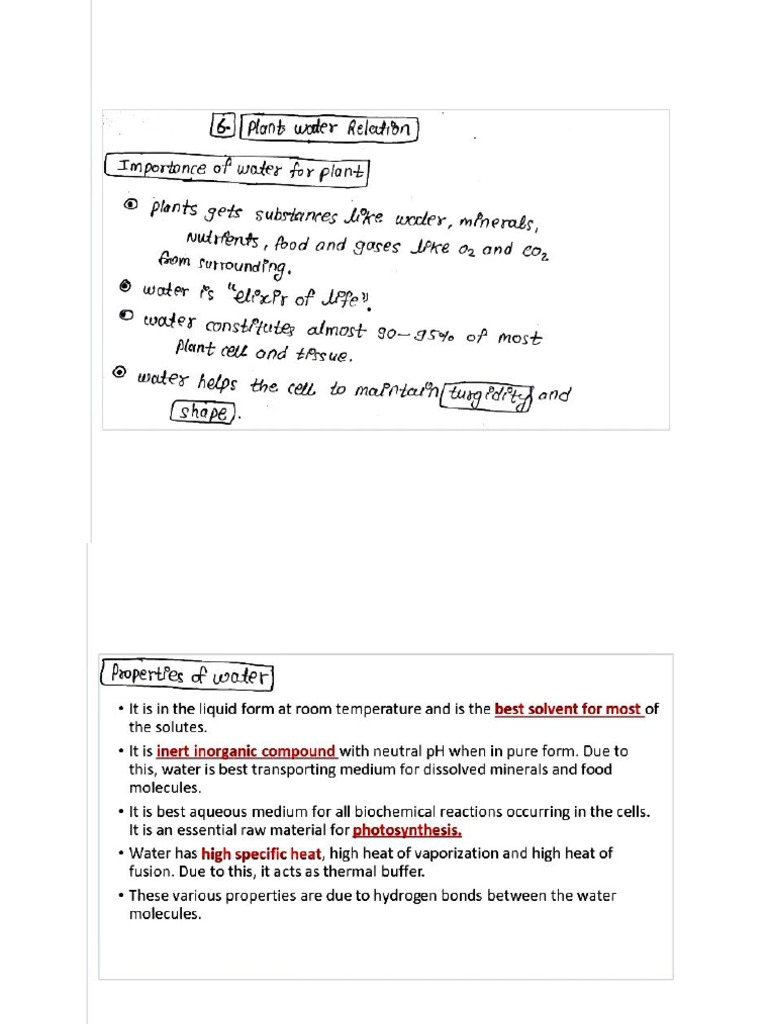 6. Plant water Relation
Importance of water for plant
plants gets substances like water, minerals,
Nutrients, food and gases like O2 and CO2
from surrounding.
water is "elixir of life".
water constitutes almost 90-95% of most
plant cell and tissue.
water helps the cell to maintain turgidity and
shape.
Properties of water
• It is in the liquid form at room temperature and is the best solvent for most of
the solutes.
• It is inert inorganic compound with neutral pH when in pure form. Due to
this, water is best transporting medium for dissolved minerals and food
molecules.
• It is best aqueous medium for all biochemical reactions occurring in the cells.
It is an essential raw material for photosynthesis.
• Water has high specific heat, high heat of vaporization and high heat of
fusion. Due to this, it acts as thermal buffer.
• These various properties are due to hydrogen bonds between the water
molecules.